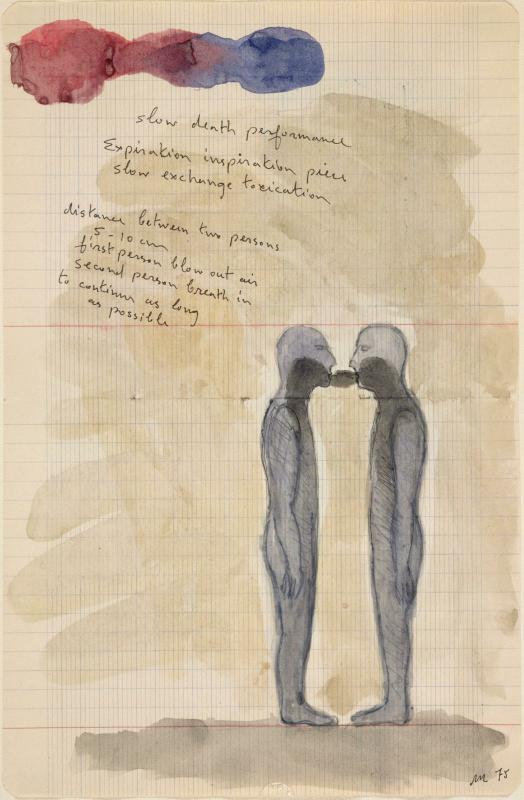 slow death performance
Expiration inspiration piece
slow exchange toxication
distance between two persons
5-10 cm
first person blow out air
second person breath in
to continue as long
as possible
75